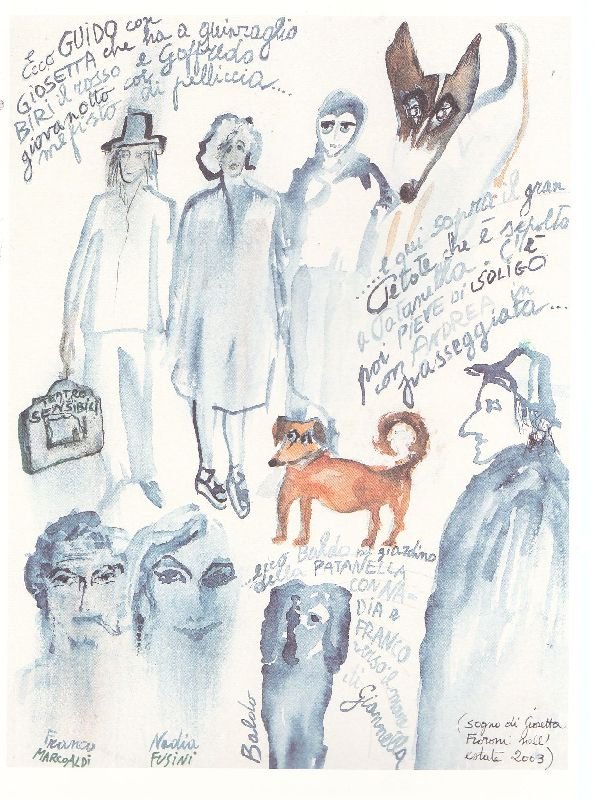 Ecco GUIDO con
GIOSETTA che ha a guinzaglio
BIRI il rosso e Goffredo
giovanotto col
mefisto di pelliccia....
......e qui sopra il gran
Petote che è sepolto
a Patanella. C'è
poi PIEVE DI SOLIGO
con ANDREA in
passeggiata...
TEATRO
SENSIBILI
Baldo in giardino
della PATANELLA
CON NA-
DIA e
FRANCO
verso il
di
Giannella
Baldo
Franco
MARCOALDI
Nadia
FUSINI
(sogno di Giosetta
Fioroni nell'
estate 2003)